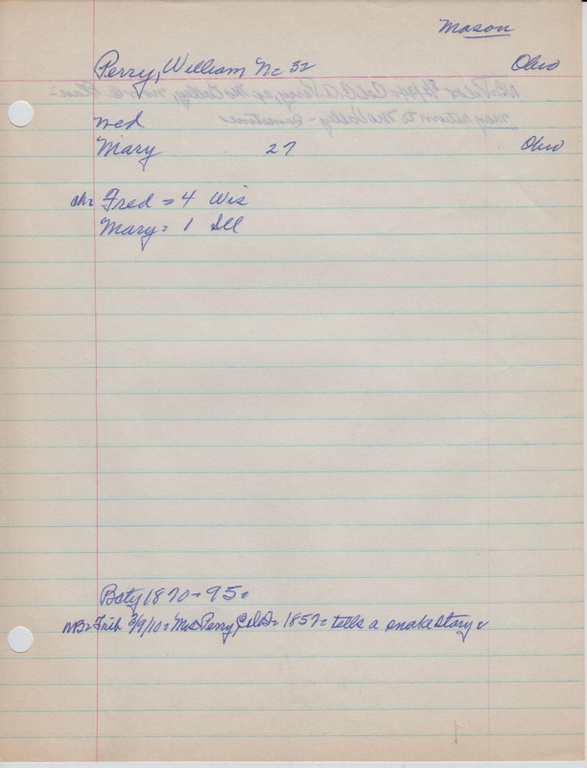 Mason
Perry, William N= 32 Ohio
wed
Mary 27 Ohio
ch= Fred = 4 Wis
Mary = 1 Ill
Boty 1870 = 95 =
NB= Trib 3/9/10 = Mrs Perry 1857 = tells a snake story